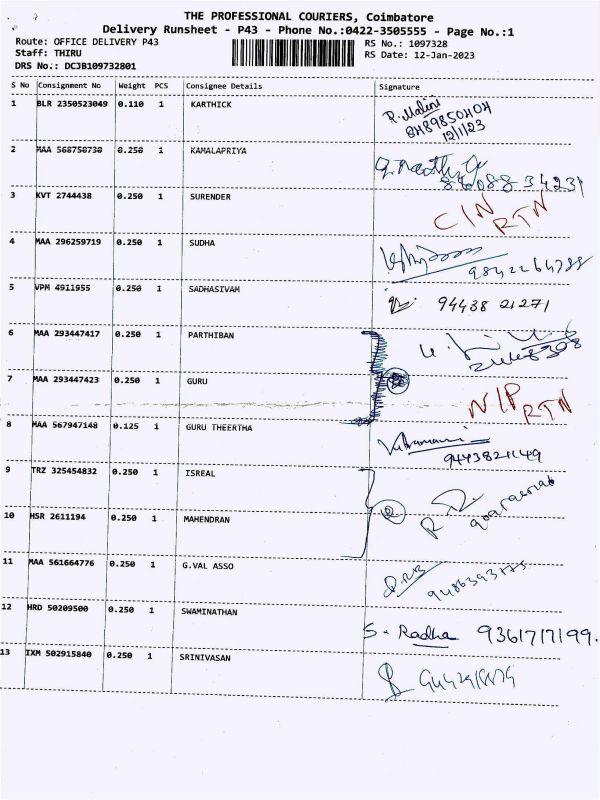 THE PROFESSIONAL COURIERS, Coimbatore
Delivery Runsheet - P43 - Phone No.:0422-3505555 - Page No.:1
Route: OFFICE DELIVERY P43
Staff: THIRU
DRS No.: DCJB109732801
RS No.: 1097328
RS Date: 12-Jan-2023
S No Consignment No Weight PCS Consignee Details Signature
1 BLR 2350523049 0.110 1 KARTHICK R. Malini
8489850404
12/1/23
2 MAA 568750730 0.250 1 KAMALAPRIYA
3 KVT 2744438 0.250 1 SURENDER C/N RTN
4 MAA 296259719 0.250 1 SUDHA
5 VPM 4911955 0.250 1 SADHASIVAM 94438 21271
6 MAA 293447417 0.250 1 PARTHIBAN
7 MAA 293447423 0.250 1 GURU N/P RTN
8 MAA 567947148 0.125 1 GURU THEERTHA
9443821149
9 TRZ 325454832 0.250 1 ISREAL
10 HSR 2611194 0.250 1 MAHENDRAN
11 MAA 561664776 0.250 1 G.VAL ASSO
12 HRD 50209500 0.250 1 SWAMINATHAN S. Radha 9361717199.
13 IXM 502915840 0.250 1 SRINIVASAN